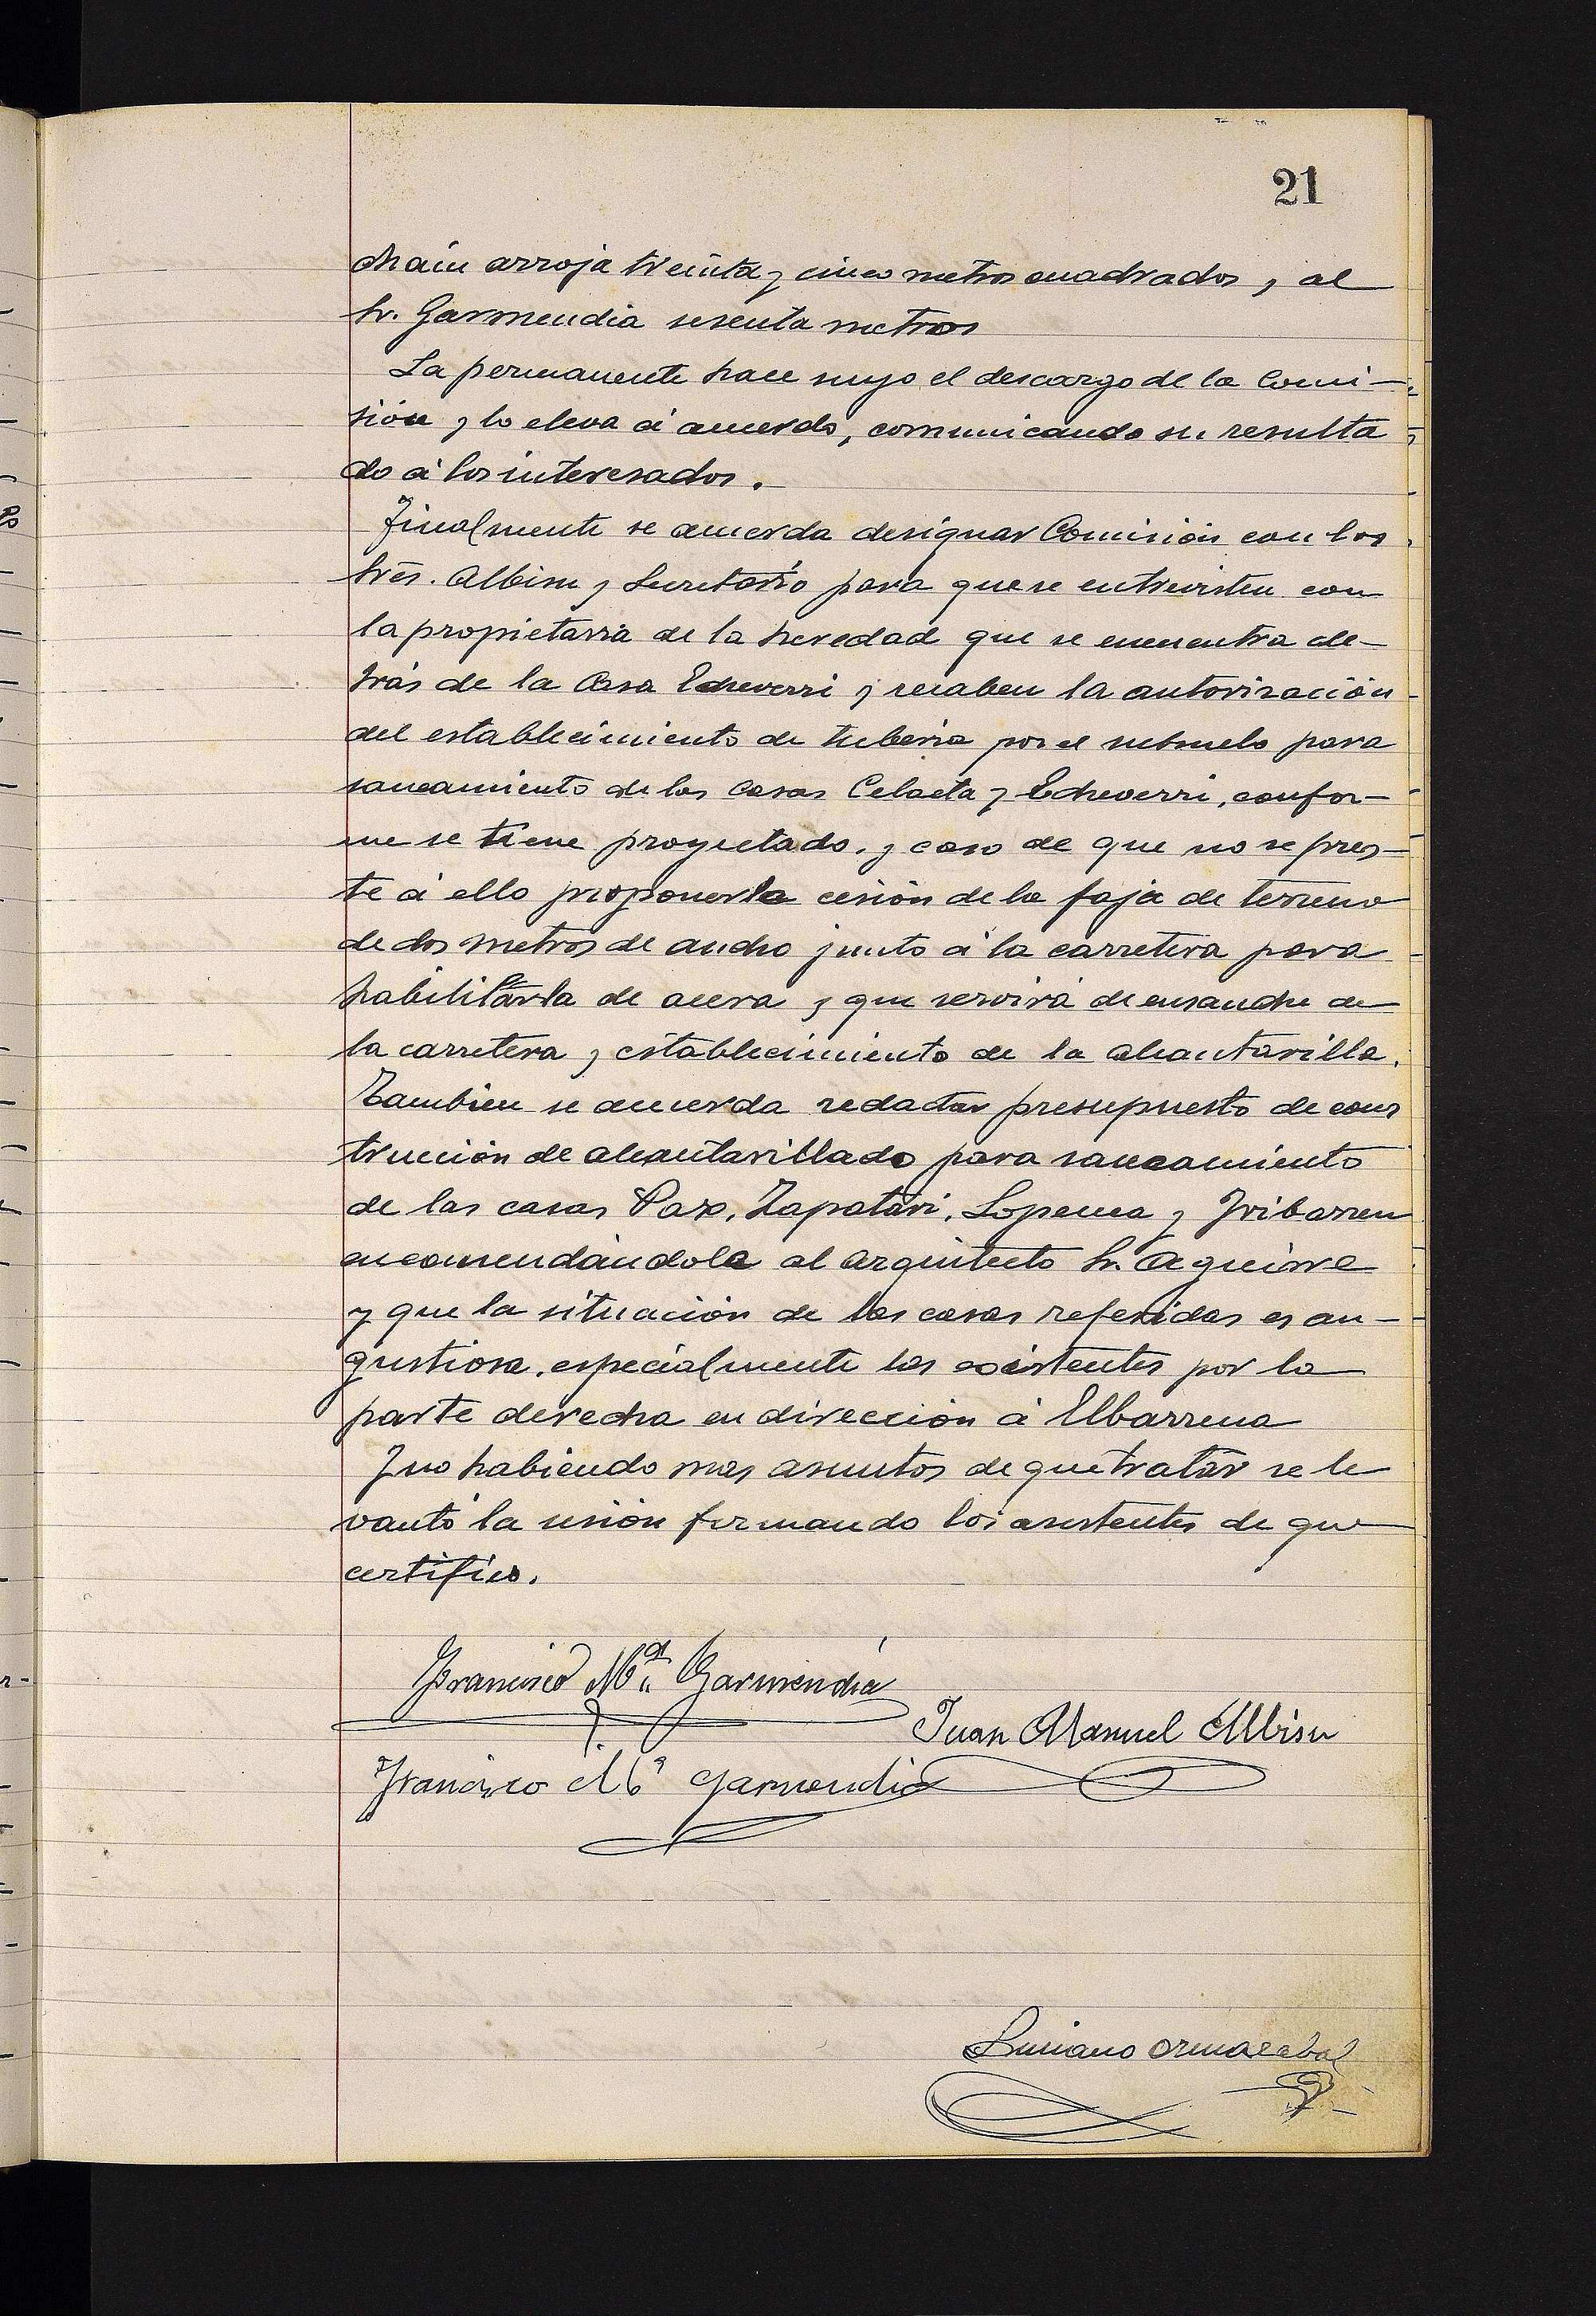 21
chain arroja treinta y cinco metros cuadrados, al
Sr. Garmendia sesenta metros
La permanente hace suyo el descargo de la Comi-
sión y lo eleva á acuerdo, comunicando su resulta
do á los interesados.
Finalmente se acuerda designar Comisión con los
Sres. Albisu y Secretario para que se entrevisten con
la propietaria de la heredad que se encuentra de-
trás de la Casa Echeverri y recaben la autorización
del establecimiento de tuberia por el subsuelo para
saneamiento de las casas Celaeta y Echeverri, confor-
me se tiene proyectado, y caso de que no se pres-
te á ello proponerla cesión de la faja de terreno
de dos metros de ancho junto á la carretera para
habilitarla de acera y que servirá de ensanche de
la carretera y establecimiento de la alcantarilla.
Tambien se acuerda redactar presupuesto de cons
trucción de alcantarillado para saneamiento
de las casas Pax, Zapatari, Lopenea y Iribarren
encomendándola al arquitecto Sr. Aguirre
y que la situación de las casas referidas es an-
gustiosa, especialmente las existentes por la
parte derecha en dirección á Elbarrena
Y no habiendo mas asuntos de que tratar se le
vantó la sesión firmando los asistentes de que
certifico.
Francisco Mª Garmendia
Juan Manuel Albisu
Francisco Mª Garmendia
Luciano Ormazabal